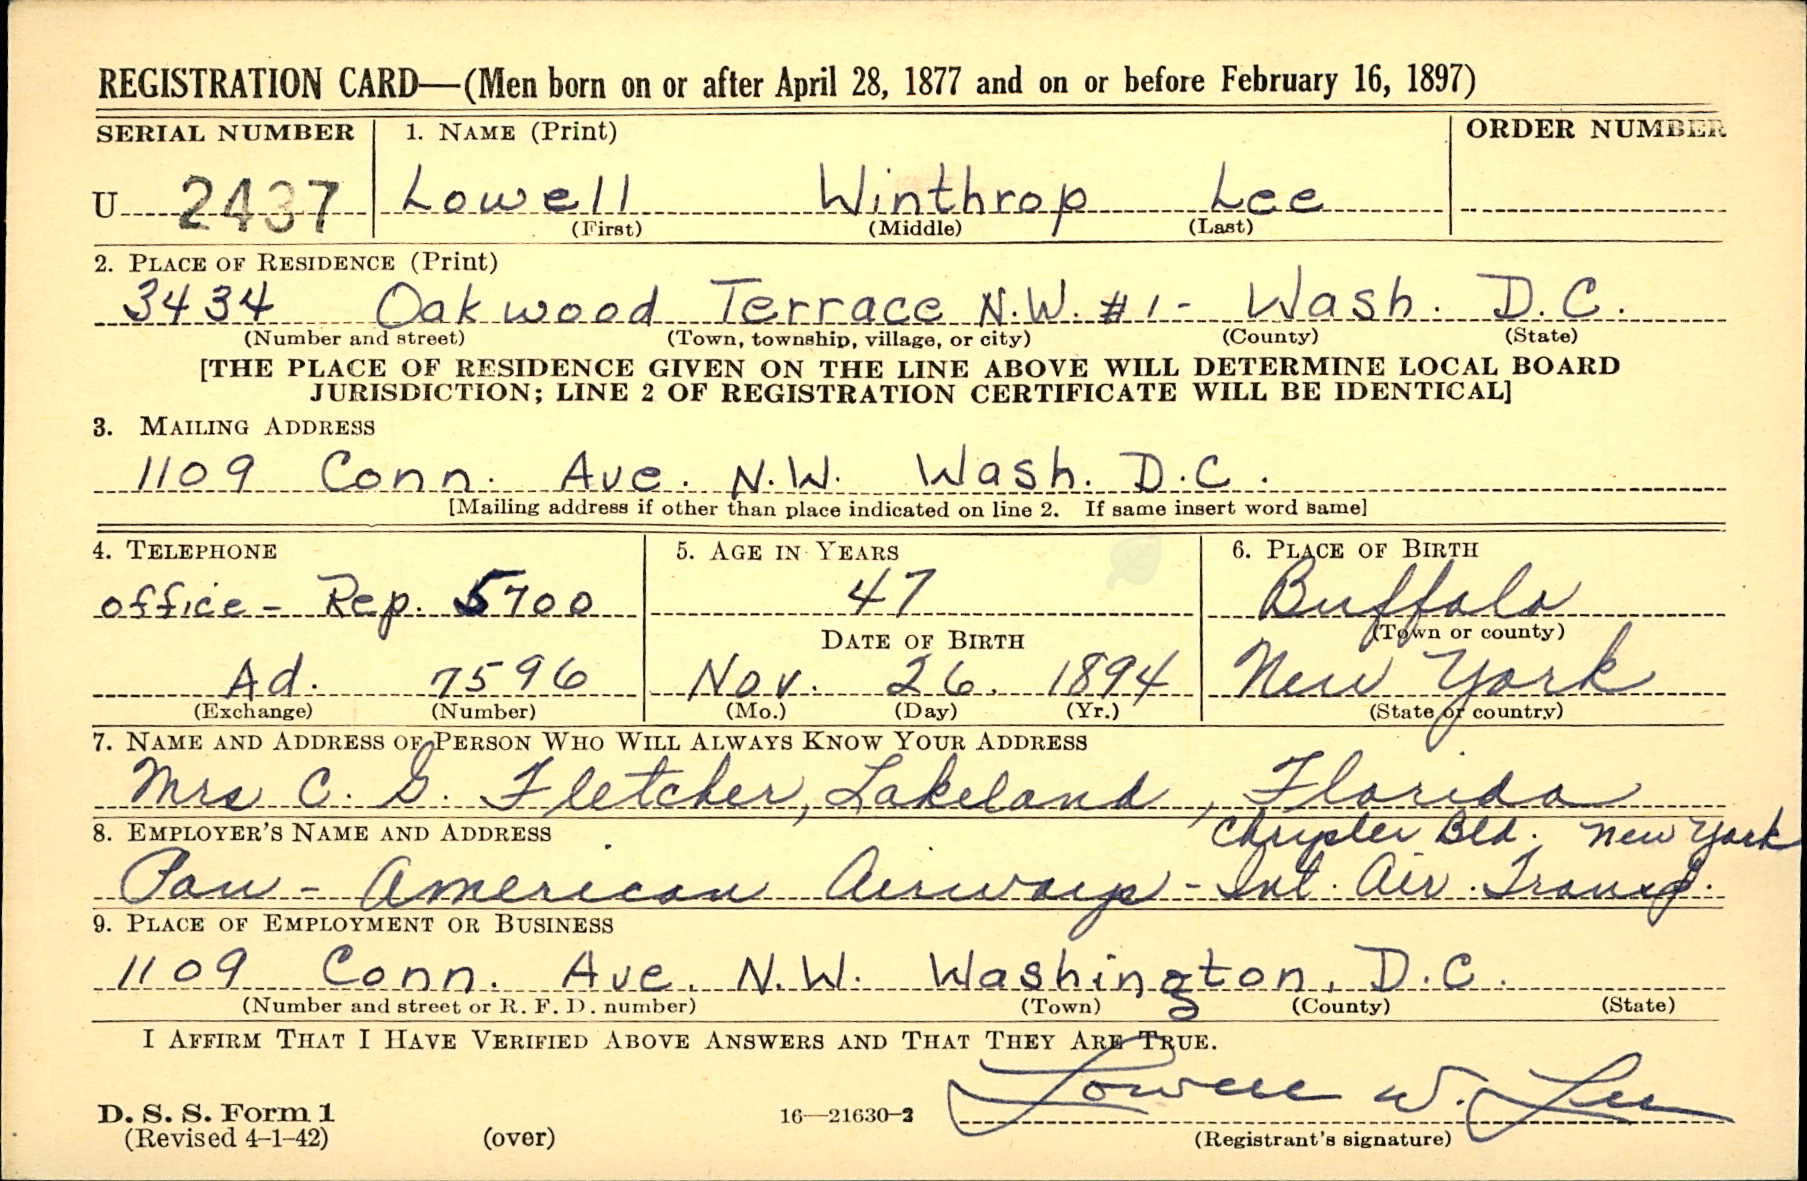 REGISTRATION CARD—(Men born on or after April 28, 1877 and on or before February 16, 1897)
SERIAL NUMBER 1. NAME (Print) ORDER NUMBER
U 2437 Lowell Winthrop Lee
(First) (Middle) (Last)
2. PLACE OF RESIDENCE (Print)
3434 Oakwood Terrace N.W. #1- Wash. D.C.
(Number and street) (Town, township, village, or city) (County) (State)
[THE PLACE OF RESIDENCE GIVEN ON THE LINE ABOVE WILL DETERMINE LOCAL BOARD
JURISDICTION; LINE 2 OF REGISTRATION CERTIFICATE WILL BE IDENTICAL]
3. MAILING ADDRESS
1109 Conn. Ave. N.W. Wash. D.C.
[Mailing address if other than place indicated on line 2. If same insert word same]
4. TELEPHONE 5. AGE IN YEARS 6. PLACE OF BIRTH
office - Rep. 5700 47 Buffalo
DATE OF BIRTH (Town or county)
Ad. 7596 Nov. 26. 1894 New York
(Exchange) (Number) (Mo.) (Day) (Yr.) (State or country)
7. NAME AND ADDRESS OF PERSON WHO WILL ALWAYS KNOW YOUR ADDRESS
Mrs C. G. Fletcher, Lakeland, Florida
8. EMPLOYER'S NAME AND ADDRESS Chrysler Bld. New York
Pan - American Airways - Int. Air. Transp.
9. PLACE OF EMPLOYMENT OR BUSINESS
1109 Conn. Ave. N.W. Washington, D.C.
(Number and street or R. F. D. number) (Town) (County) (State)
I AFFIRM THAT I HAVE VERIFIED ABOVE ANSWERS AND THAT THEY ARE TRUE.
Lowell W. Lee
D. S. S. Form 1 16—21630-2
(Revised 4-1-42) (over) (Registrant's signature)